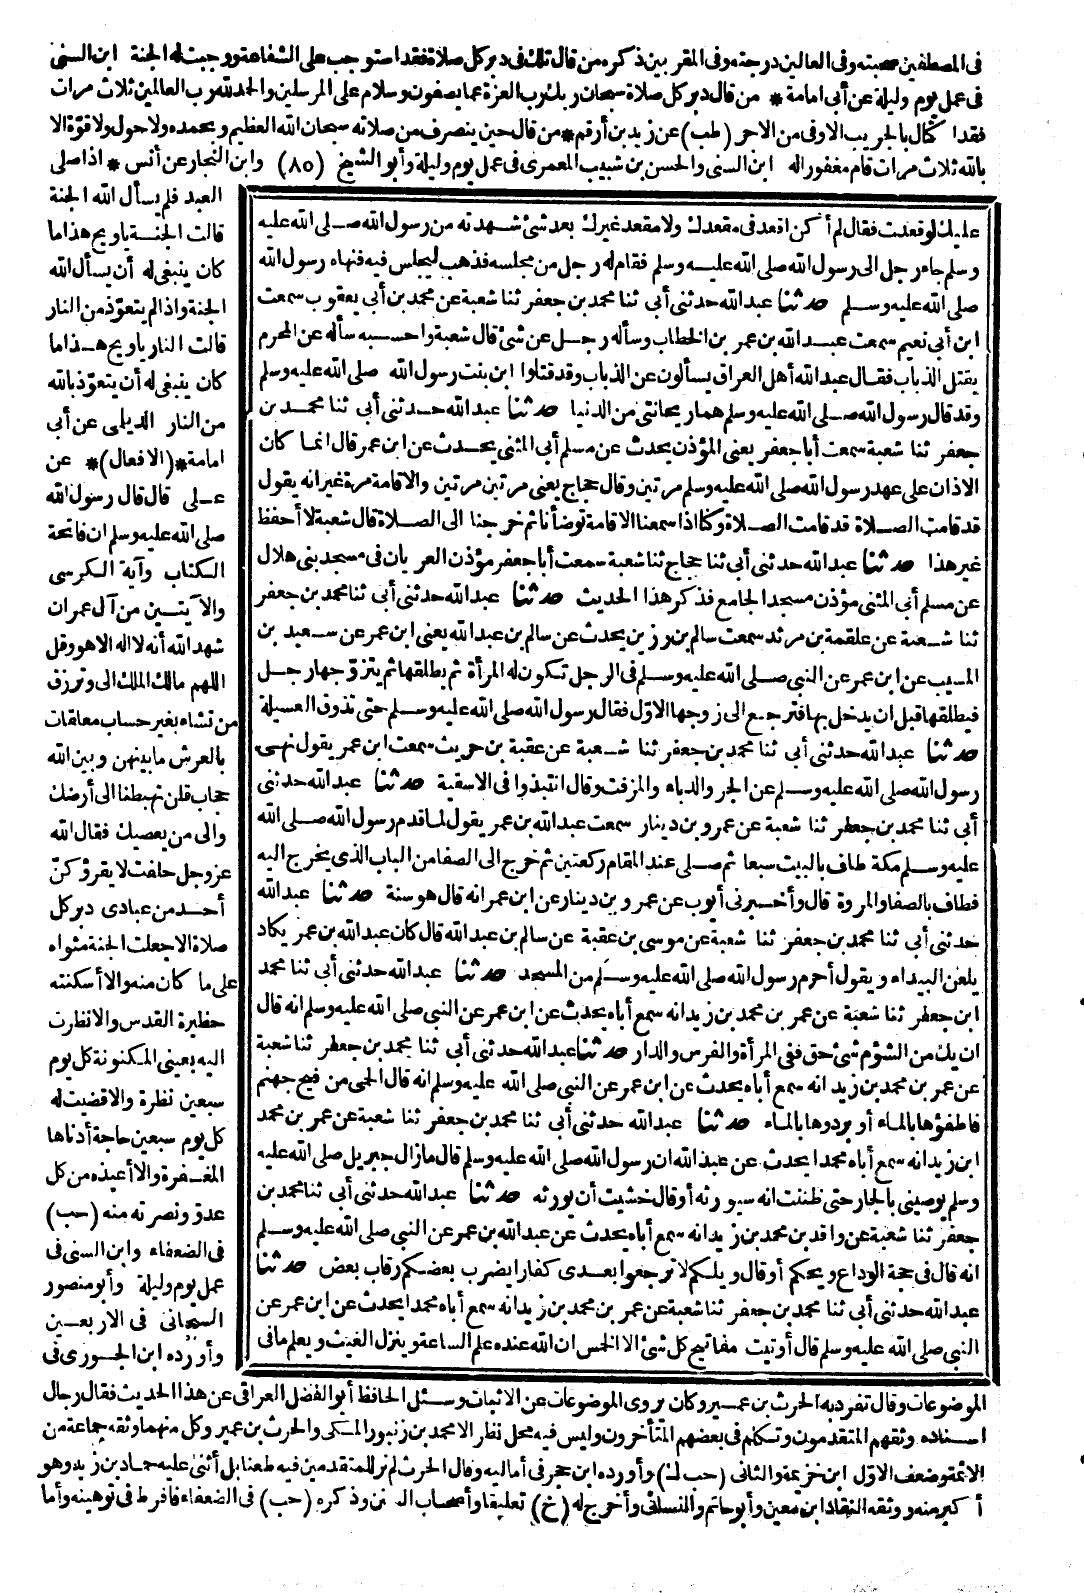 فى المصطفين محبته وفى العالين درجته وفى المقربين ذكره من قال تلك فى دبر كل صلاة فقد استوجب على الشفاعة ووجبت له الجنة ابن السنى
فى عمل يوم وليلة عن أبى امامة * من قال دبر كل صلاة سبحان ربك رب العزة عما يصفون وسلام على المرسلين والحمد لله رب العالمين ثلاث مرات
فقد اكتال بالجريب الاوفى من الاجر (طب) عن زيد بن أرقم * من قال حين ينصرف من صلاته سبحان الله العظيم وبحمده ولا حول ولا قوة الا
بالله ثلاث مرات قام مغفورا له ابن السنى والحسن بن شبيب المعمرى فى عمل يوم وليلة وأبو الشيخ (٨٥) وابن النجار عن أنس * اذا صلى
العبد فلم يسأل الله الجنة
قالت الجنة ياويح هذا ما
كان ينبغى له أن يسأل الله
الجنة واذا لم يتعوذ من النار
قالت النار ياويح هذا ما
كان ينبغى له أن يتعوذ بالله
من النار الديلى عن أبى
امامة * (الافعال) * عن
على قال قال رسول الله
صلى الله عليه وسلم ان فاتحة
الكتاب وآية الكرسى
والآيتين من آل عمران
شهد الله أنه لا اله الا هو وقل
اللهم مالك الملك الى وترزق
من تشاء بغير حساب معلقات
بالعرش ما بينهن وبين الله
حجاب قلن تهبطنا الى أرضك
والى من يعصيك فقال الله
عز وجل حلفت لا يقرؤكن
أحد من عبادى دبر كل
صلاة الا جعلت الجنة مثواه
على ما كان منه والا أسكنته
حظيرة القدس والا نظرت
اليه بعينى المكنونة كل يوم
سبعين نظرة والا قضيت له
كل يوم سبعين حاجة أدناها
المغفرة والا أعيذه من كل
عدو ونصرته منه (حب)
فى الضعفاء وابن السنى فى
عمل يوم وليلة وأبو منصور
السحانى فى الاربعين
وأورده ابن الجوزى فى
عليك لو قعدت فقال لم أكن اقعد فى مقعدك ولا مقعد غيرك بعد شئ شهدته من رسول الله صلى الله عليه
وسلم جاء رجل الى رسول الله صلى الله عليه وسلم فقام له رجل من مجلسه فذهب ليجلس فيه فنهاه رسول الله
صلى الله عليه وسلم حدثنا عبد الله حدثنى أبى ثنا محمد بن جعفر ثنا شعبة عن محمد بن أبى يعقوب سمعت
ابن أبى نعيم سمعت عبد الله بن عمر بن الخطاب وسأله رجل عن شئ قال شعبة واحسبه سأله عن المحرم
يقتل الذباب فقال عبد الله أهل العراق يسألون عن الذباب وقد قتلوا ابن بنت رسول الله صلى الله عليه وسلم
وقد قال رسول الله صلى الله عليه وسلم هما ريحانتى من الدنيا حدثنا عبد الله حدثنى أبى ثنا محمد بن
جعفر ثنا شعبة سمعت أبا جعفر يعنى المؤذن يحدث عن مسلم أبى المثنى يحدث عن ابن عمر قال انما كان
الاذان على عهد رسول الله صلى الله عليه وسلم مرتين وقال حجاج يعنى مرتين مرتين والاقامة مرة غير انه يقول
قد قامت الصلاة قد قامت الصلاة وكنا اذا سمعنا الاقامة توضأنا ثم خرجنا الى الصلاة قال شعبة لا أحفظ
غير هذا حدثنا عبد الله حدثنى أبى ثنا حجاج ثنا شعبة سمعت أبا جعفر مؤذن العربان فى مسجد بنى هلال
عن مسلم أبى المثنى مؤذن مسجد الجامع فذكر هذا الحديث حدثنا عبد الله حدثنى أبى ثنا محمد بن جعفر
ثنا شعبة عن علقمة بن مرثد سمعت سالم بن رزين يحدث عن سالم بن عبد الله يعنى ابن عمر عن سعيد بن
المسيب عن ابن عمر عن النبى صلى الله عليه وسلم فى الرجل تكون له المرأة ثم يطلقها ثم يتزوجها رجل
فيطلقها قبل ان يدخل بها فترجع الى زوجها الاول فقال رسول الله صلى الله عليه وسلم حتى تذوق العسيلة
حدثنا عبد الله حدثنى أبى ثنا محمد بن جعفر ثنا شعبة عن عقبة بن حريث سمعت ابن عمر يقول نهى
رسول الله صلى الله عليه وسلم عن الجر والدباء والمزفت وقال انتبذوا فى الاسقية حدثنا عبد الله حدثنى
أبى ثنا محمد بن جعفر ثنا شعبة عن عمرو بن دينار سمعت عبد الله بن عمر يقول لما قدم رسول الله صلى الله
عليه وسلم مكة طاف بالبيت سبعا ثم صلى عند المقام ركعتين ثم خرج الى الصفا من الباب الذى يخرج اليه
فطاف بالصفا والمروة قال وأخبرنى أيوب عن عمرو بن دينار عن ابن عمر انه قال هو سنة حدثنا عبد الله
حدثنى أبى ثنا محمد بن جعفر ثنا شعبة عن موسى بن عقبة عن سالم بن عبد الله قال كان عبد الله بن عمر يكاد
يلعن البيداء ويقول أحرم رسول الله صلى الله عليه وسلم من المسجد حدثنا عبد الله حدثنى أبى ثنا محمد
ابن جعفر ثنا شعبة عن عمر بن محمد بن زيد انه سمع أباه يحدث عن ابن عمر عن النبى صلى الله عليه وسلم انه قال
ان يك من الشؤم شئ حق ففى المرأة والفرس والدار حدثنا عبد الله حدثنى أبى ثنا محمد بن جعفر ثنا شعبة
عن عمر بن محمد بن زيد انه سمع أباه يحدث عن ابن عمر عن النبى صلى الله عليه وسلم انه قال الحمى من فيح جهنم
فاطفؤها بالماء أو بردوها بالماء حدثنا عبد الله حدثنى أبى ثنا محمد بن جعفر ثنا شعبة عن عمر بن محمد
ابن زيد انه سمع أباه محمدا يحدث عن عبد الله ان رسول الله صلى الله عليه وسلم قال ما زال جبريل صلى الله عليه
وسلم يوصينى بالجار حتى ظننت انه سيورثه أو قال خشيت أن يورثه حدثنا عبد الله حدثنى أبى ثنا محمد بن
جعفر ثنا شعبة عن واقد بن محمد بن زيد انه سمع أباه يحدث عن عبد الله بن عمر عن النبى صلى الله عليه وسلم
انه قال فى حجة الوداع ويحكم أو قال ويلكم لا ترجعوا بعدى كفارا يضرب بعضكم رقاب بعض حدثنا
عبد الله حدثنى أبى ثنا محمد بن جعفر ثنا شعبة عن عمر بن محمد بن زيد انه سمع أباه محمدا يحدث عن ابن عمر عن
النبى صلى الله عليه وسلم قال أوتيت مفاتيح كل شئ الا الخمس ان الله عنده علم الساعة وينزل الغيث ويعلم ما فى
الموضوعات وقال تفرد به الحرث بن عمير وكان يروى الموضوعات عن الاثبات وسئل الحافظ أبو الفضل العراقى عن هذا الحديث فقال رجال
اسناده وثقهم المتقدمون وتكلم فى بعضهم المتأخرون وليس فيه محل نظر الا محمد بن زنبور المكى والحرث بن عمير وكل منهما وثقه جماعة من
الائمة وضعف الاول ابن خزيمة والثانى (حب ك) وأورده ابن حجر فى أماليه وقال الحرث لم نر للمتقدمين فيه طعنا بل أثنى عليه حماد بن زيد وهو
أكبر منه ووثقه النقاد ابن معين وأبو حاتم والنسائى وأخرج له (خ) تعليقا وأصحاب السنن وذكره (حب) فى الضعفاء فافرط فى توهينه وأما